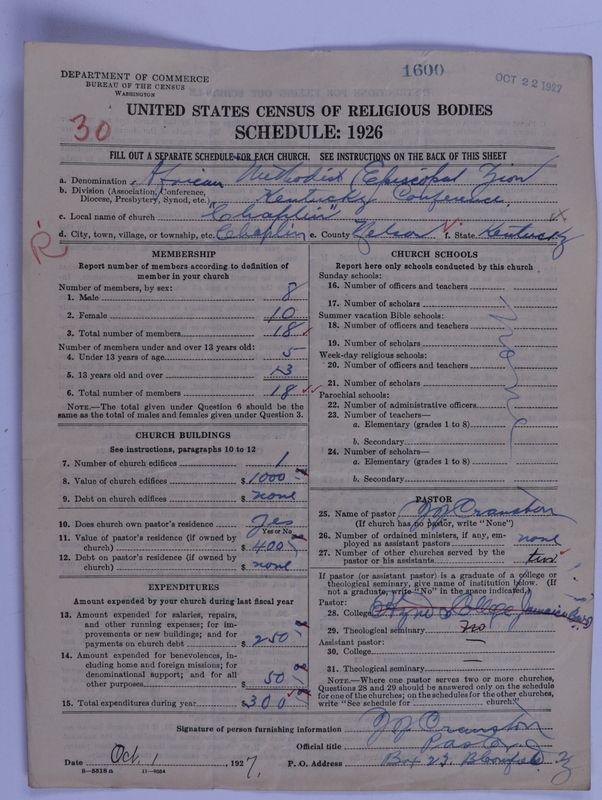 1600
OCT 22 1927
DEPARTMENT OF COMMERCE
BUREAU OF THE CENSUS
WASHINGTON
UNITED STATES CENSUS OF RELIGIOUS BODIES
30
SCHEDULE: 1926
FILL OUT A SEPARATE SCHEDULE FOR EACH CHURCH. SEE INSTRUCTIONS ON THE BACK OF THIS SHEET
a. Denomination African Methodist Episcopal Zion
b. Division (Association, Conference, Diocese, Presbytery, Synod, etc.) Kentucky Conference.
c. Local name of church "Chaplin"
d. City, town, village, or township, etc. Chaplin e. County Nelson f. State Kentucky
R
MEMBERSHIP
Report number of members according to definition of
member in your church
Number of members, by sex:
1. Male 8
2. Female 10
3. Total number of members 18
Number of members under and over 13 years old:
4. Under 13 years of age 5
5. 13 years old and over 13
6. Total number of members 18
NOTE.—The total given under Question 6 should be
same as the total of males and females given under Question 3.
CHURCH BUILDINGS
See instructions, paragraphs 10 to 12
7. Number of church edifices 1
8. Value of church edifices $ 1000
9. Debt on church edifices $ none
10. Does church own pastor's residence Yes
Yes or No
11. Value of pastor's residence (if owned by
church) $ 400
12. Debt on pastor's residence (if owned by
church) $ none
EXPENDITURES
Amount expended by your church during last fiscal year
13. Amount expended for salaries, repairs,
and other running expenses; for im-
provements or new buildings; and for
payments on church debt $ 250
14. Amount expended for benevolences, in-
cluding home and foreign missions; for
denominational support; and for all
other purposes $ 50
15. Total expenditures during year $ 300
CHURCH SCHOOLS
Report here only schools conducted by this church
Sunday schools:
16. Number of officers and teachers
17. Number of scholars
Summer vacation Bible schools:
18. Number of officers and teachers
19. Number of scholars
Week-day religious schools:
20. Number of officers and teachers
21. Number of scholars
Parochial schools:
22. Number of administrative officers
23. Number of teachers—
a. Elementary (grades 1 to 8)
b. Secondary
24. Number of scholars—
a. Elementary (grades 1 to 8)
b. Secondary
none
PASTOR
25. Name of pastor J. J. Cranston
(If church has no pastor, write "None")
26. Number of ordained ministers, if any, em-
ployed as assistant pastors none
27. Number of other churches served by the
pastor or his assistants two
If pastor (or assistant pastor) is a graduate of a college or
theological seminary, give name of institution below. (If
not a graduate, write "No" in the space indicated.)
Pastor:
28. College College Jamaica
29. Theological seminary no
Assistant pastor:
30. College —
31. Theological seminary —
NOTE.—Where one pastor serves two or more churches,
Questions 28 and 29 should be answered only on the schedule
for one of the churches; on the schedules for the other churches,
write "See schedule for church."
Signature of person furnishing information J. J. Cranston
Official title Pastor
Date Oct. 1, 1927. P. O. Address Box 23, Bloomfield Ky
8—5518a 11—9054